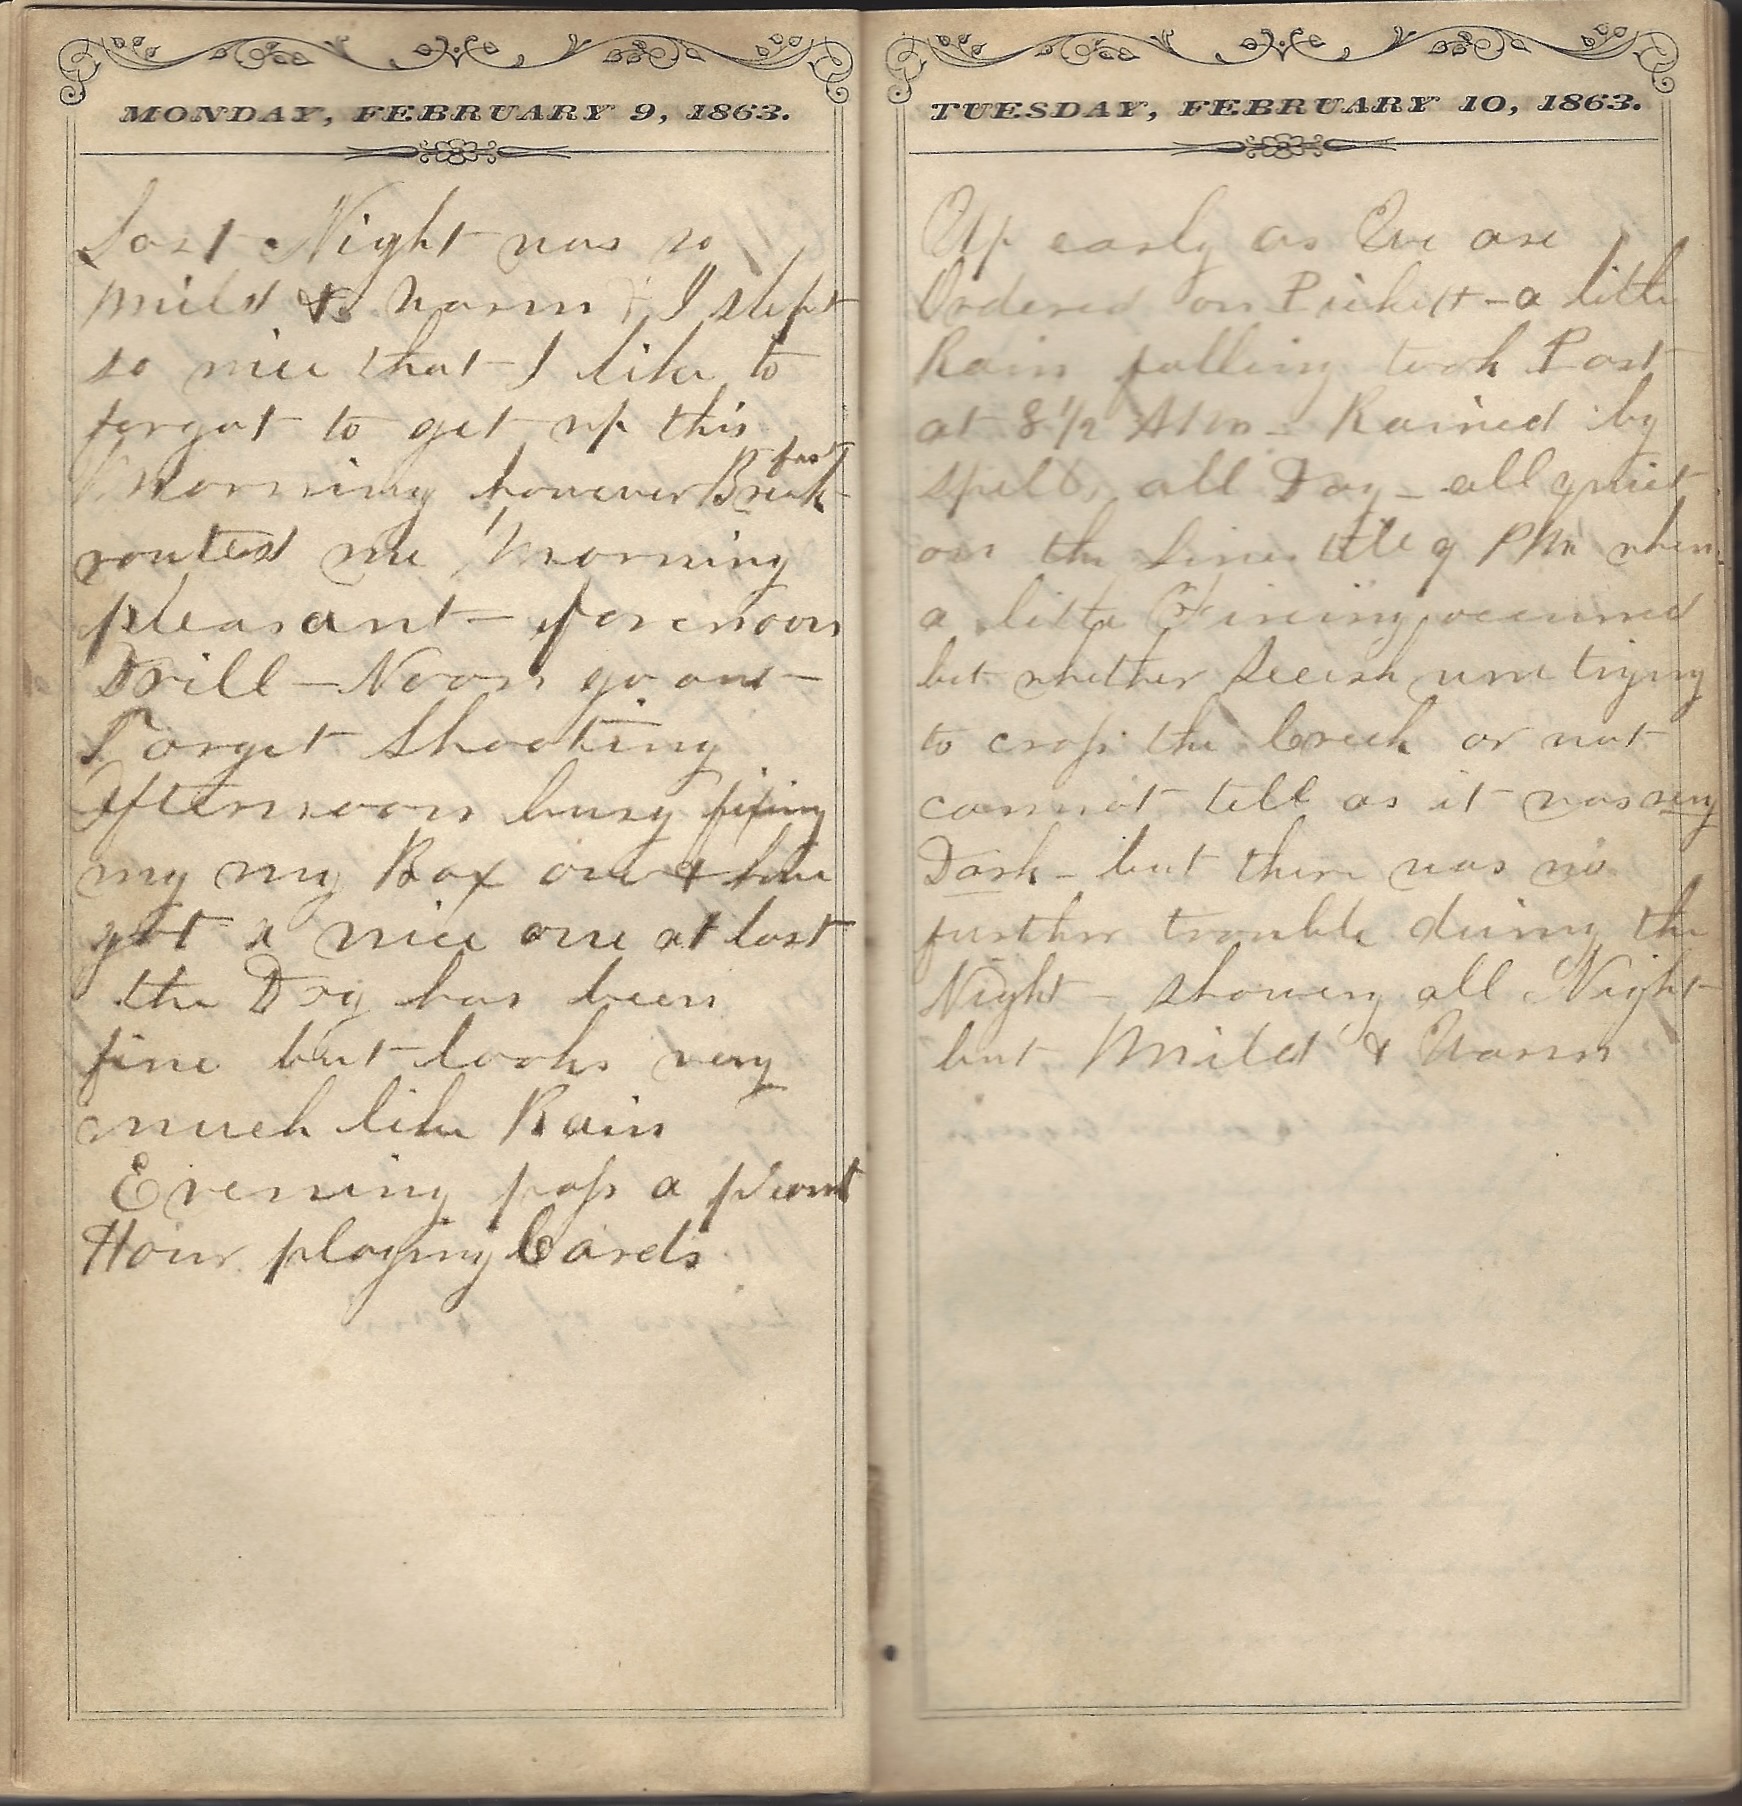 MONDAY, FEBRUARY 9, 1863.
Last Night was so
mild & warm & I slept
so nice that I like to
forgot to get up this
Morning however Breakfast
routed me Morning
pleasant – forenoon
Drill – Noon go out
Target Shooting
Afternoon busy fixing
my my Box over & have
got a nice one at last
the Day has been
fine but looks very
much like Rain
Evening pass a pleasant
Hour playing Cards
TUESDAY, FEBRUARY 10, 1863.
Up early as We are
Ordered on Pickett – a little
Rain falling took Post
at 8 1/2 AM – Rained by
spells all Day – all quiet
on the Lines till 9 PM when
a little Fireing occurred
but whether Secesh were trying
to cross the Creek or not
cannot tell as it was very
Dark – but there was no
further trouble during the
Night – showery all Night
but Mild & Warm